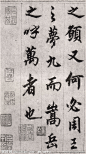 之願又何必用王
之夢九而嵩岳
之呼萬者也